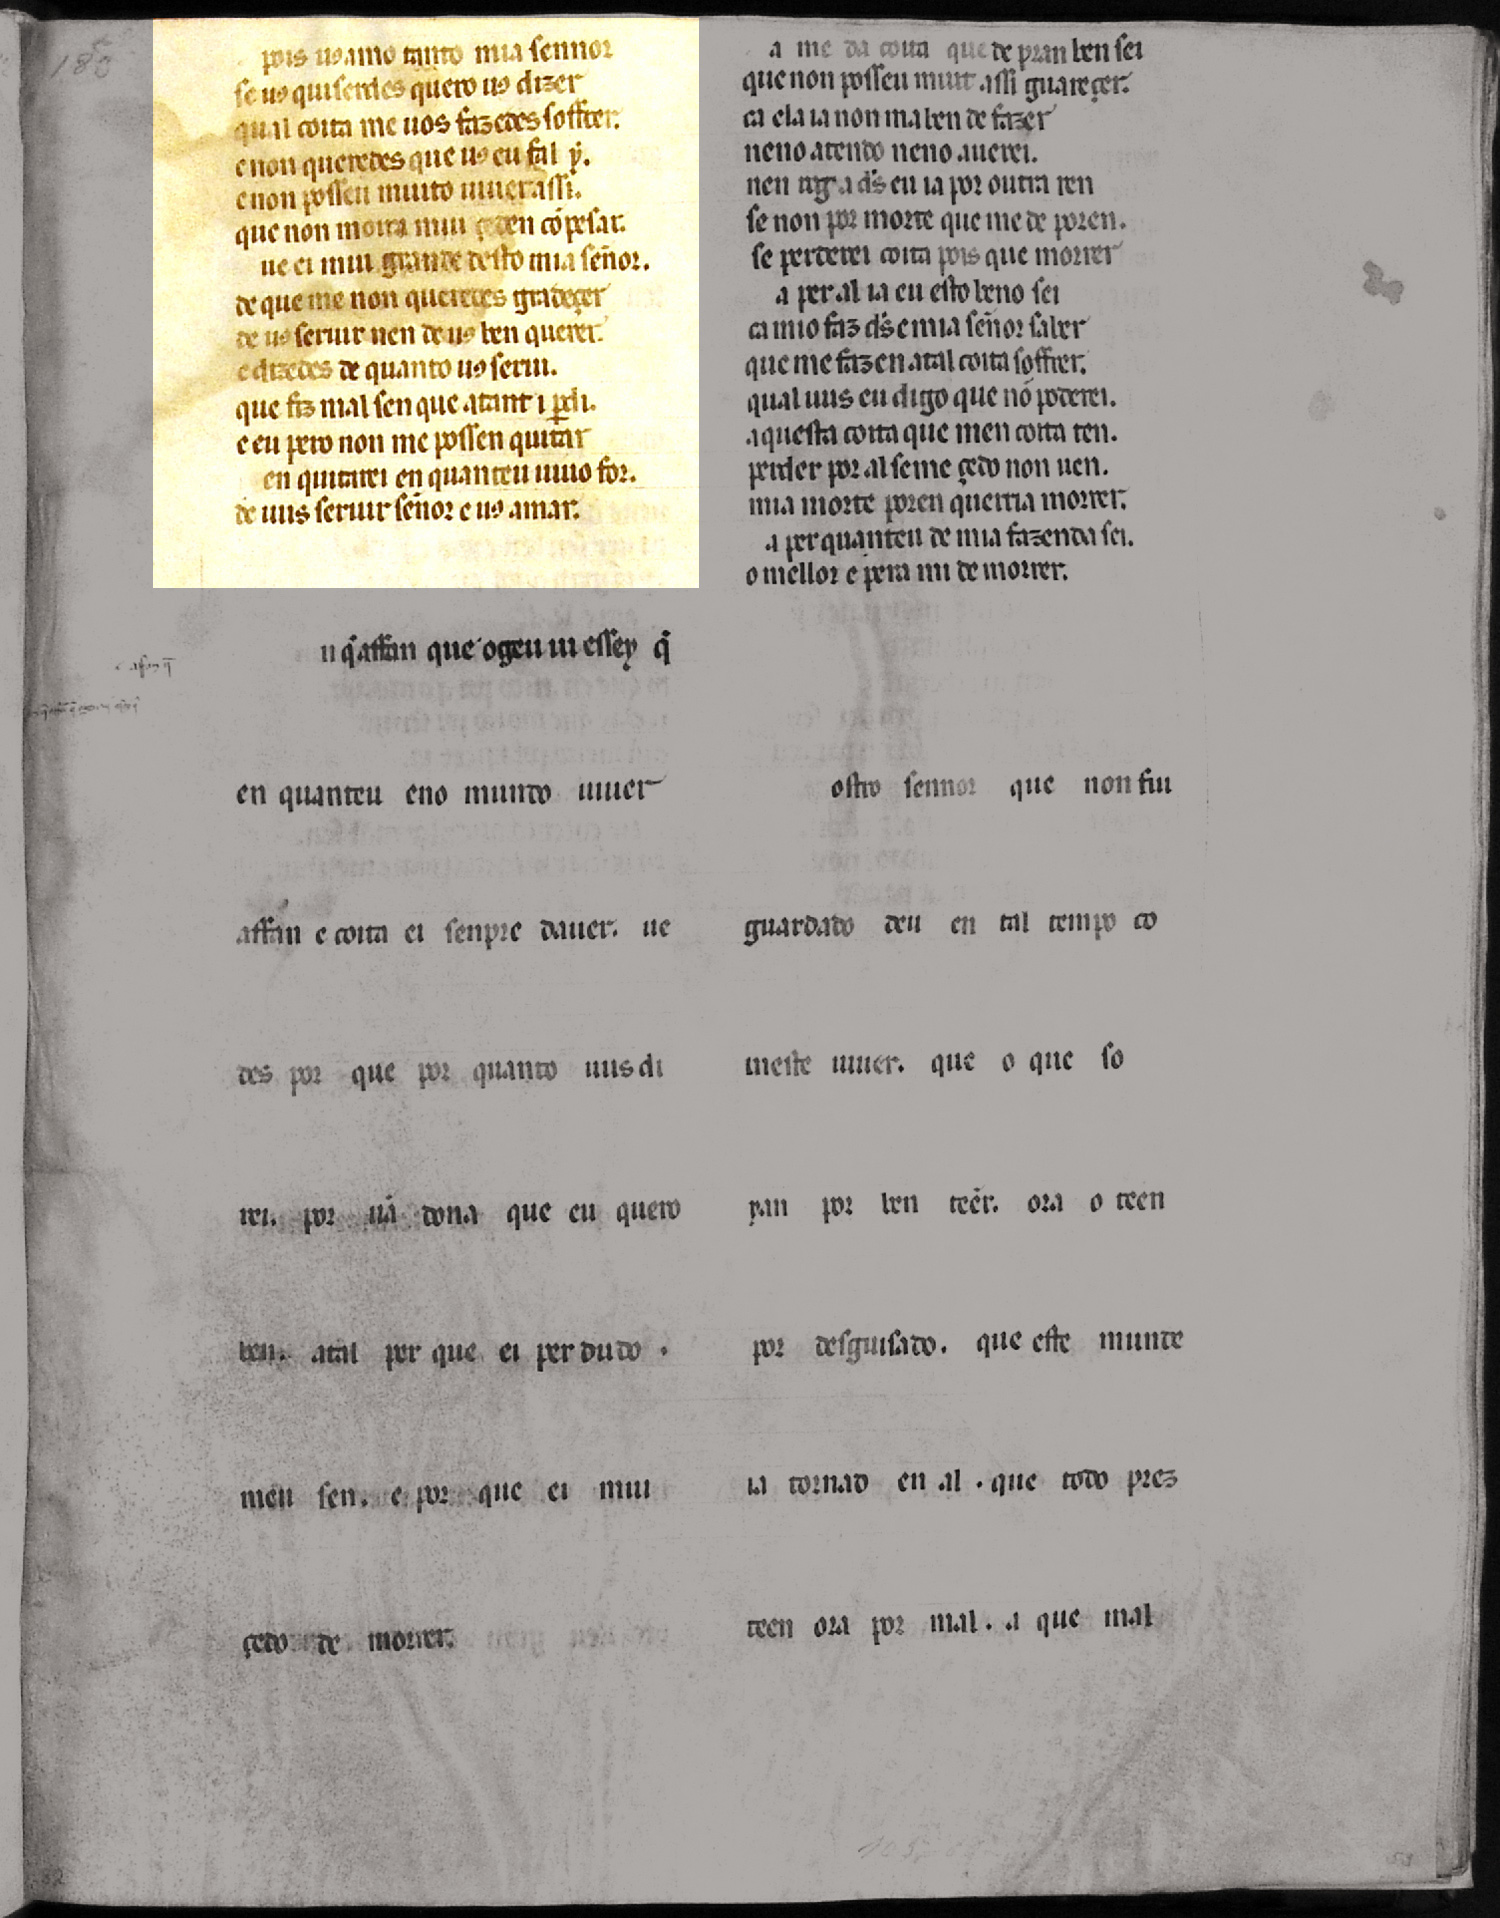 pois uꝯ amo tanto mia sennor
se uꝯ quiserdes quero uꝯ dizer
qual coita me uos fazedes soffrer.
e non queredes que uꝯ eu fal ẏ.
e non posseu muito uiuer assi.
que non moira mui çeden cõ pesar.
ue ei mui grande desto mia señor.
de que me non queredes gradeçer
de uꝯ seruir nen de uꝯ ben querer.
e dizedes de quanto uꝯ serui.
que fiz mal sen que atant i ꝑdi.
e eu pero non me possen quitar
en quitarei en quanteu uiuo for.
de uus seruir señor e uꝯ amar.
u q̃ affan que ogeu ui essey q̃
en quanteu eno mundo uiuer
affan e coita ei senpre dauer. ue
des por que por quanto uus di
rei. por uã dona que eu quero
ben. atal per que ei perdudo .
meu sen. e por que ei mui
çedo de morrer.
a me da coita que de pran ben sei
que non posseu muit assi guareçer.
ca ela ia non ma ben de fazer
neno atendo neno auerei.
nen rog a d̃s eu ia por outra ren
se non por morte que me de poren.
se perderei coita pois que morrer
a per al ia eu esto beno sei
ca mio faz d̃s e mia señor saber
que me fazen atal coita soffrer.
qual uus eu digo que nõ poderei.
aquesta coita que men coita ten.
perder por al se me çedo non uen.
mia morte poren querria morrer.
a per quanteu de mia fazenda sei.
o mellor e pera mi de morrer.
ostro sennor que non fui
guardado deu en tal tempo co
meste uiuer. que o que so
yan por ben teẽr. ora o teen
por desguisado. que este munde
ia tornad en al . que todo prez
teen ora por mal . a que mal